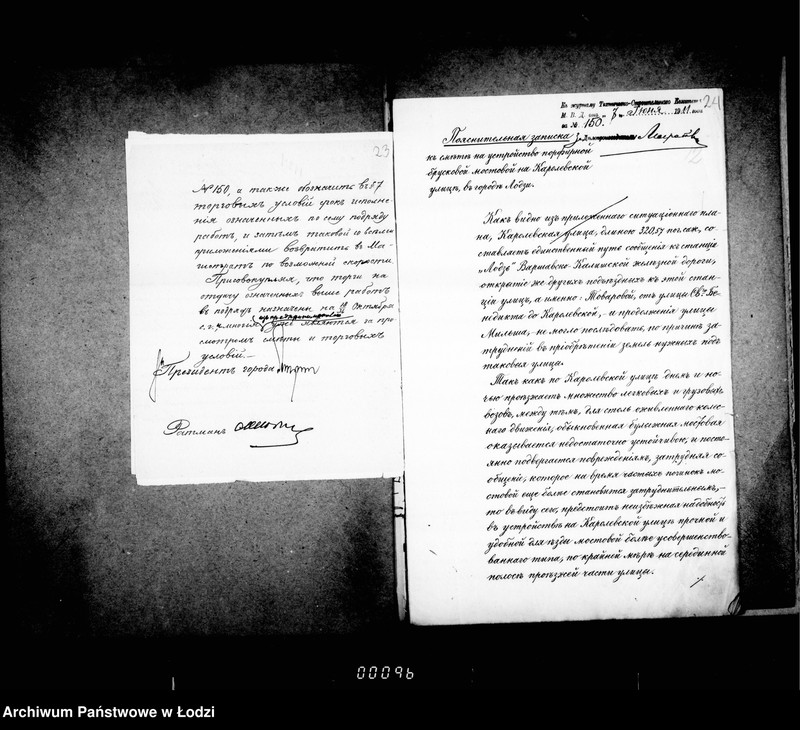 23
№ 150, а также обозначить въ § 7
торговыхъ условій срокъ исполне-
нія означенныхъ по сему подряду
работъ, и затѣмъ таковой со всѣми
приложеніями возвратить въ Ма-
гистратъ по возможной скорости.
Присовокупляя, что торги на
отдачу означенныхъ выше работъ
въ подрядъ назначены на Октября
с. г. и многіе уже являются за про-
смотромъ смѣты и торговыхъ
условій.—
Президентъ города
Ратманъ
24
Къ журналу Техническо-Строительнаго Комитета
М. В. Д. отъ 7 Іюня 1911 года
за № 150.
Пояснительная записка
къ смѣтѣ на устройство порфирной
брусковой мостовой на Каролевской
улицѣ, въ городѣ Лодзи.
Какъ видно изъ приложеннаго ситуаціоннаго пла-
на, Каролевская улица, длиною 320.57 пог. саж., со-
ставляетъ единственный путь сообщенія къ станціи
„Лодзь" Варшавско-Калишской желѣзной дороги;
открытіе же другихъ подъѣздныхъ къ этой стан-
ціи улицъ, а именно: Товаровой, отъ улицы Св. Бе-
недикта до Каролевской, и продолженія улицы
Мильша, не могло послѣдовать, по причинѣ за-
трудненій въ пріобрѣтеніи земель нужныхъ подъ
таковыя улицы.
Такъ какъ по Каролевской улицѣ днемъ и но-
чью проѣзжаетъ множество легковыхъ и грузовыхъ
возовъ, между тѣмъ, для столь оживленнаго колес-
наго движенія, обыкновенная булыжная мостовая
оказывается недостаточно устойчивою, и посто-
янно подвергается поврежденіямъ, затрудняя со-
общеніе, которое на время частыхъ починокъ мо-
стовой еще болѣе становится затруднительнымъ,—
то въ виду сего, предстоитъ неизбѣжная надобность
въ устройствѣ на Каролевской улицѣ прочной и
удобной для ѣзды мостовой болѣе усовершенство-
ваннаго типа, по крайней мѣрѣ на серединной
полосѣ проѣзжей части улицы.
00096
Archiwum Państwowe w Łodzi